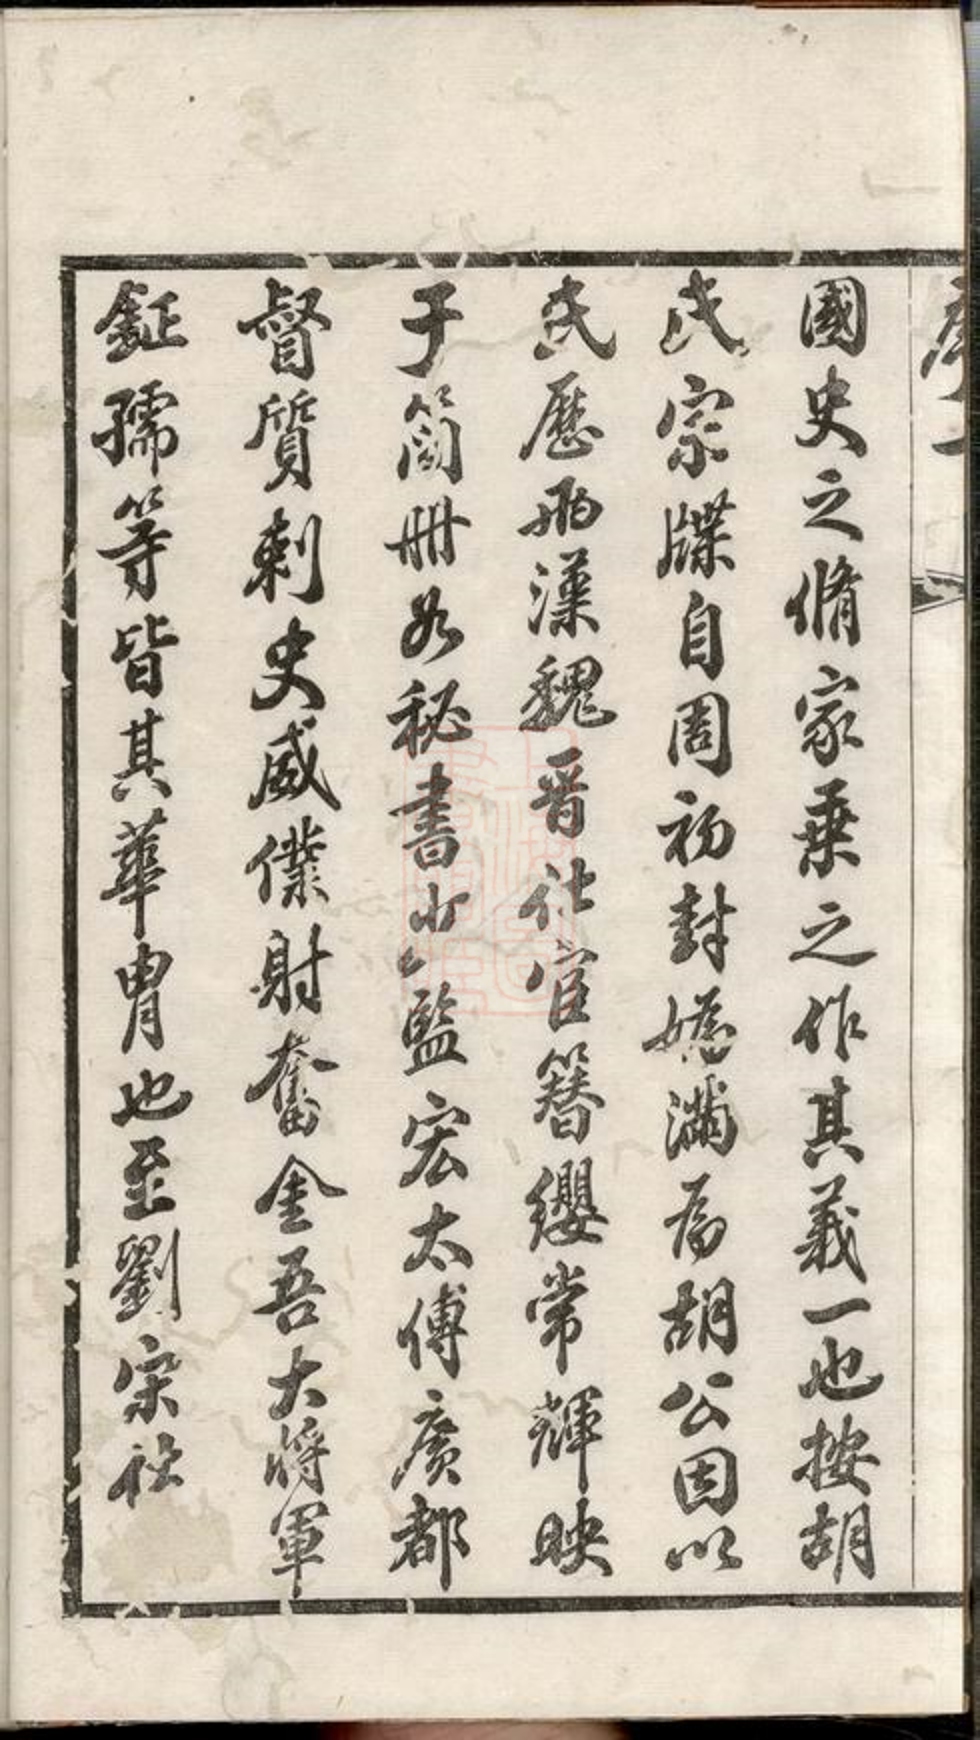 國史之脩家乗之作其義一也按胡
氏宗牒自周初封媯滿為胡公因以
氏歷兩漢魏晋仕宦簪纓常輝映
于簡冊如秘書少監宏太傅廣都
督質刺史威僕射奮金吾大將軍
鉦孺等皆其華胄也至劉宋社
序